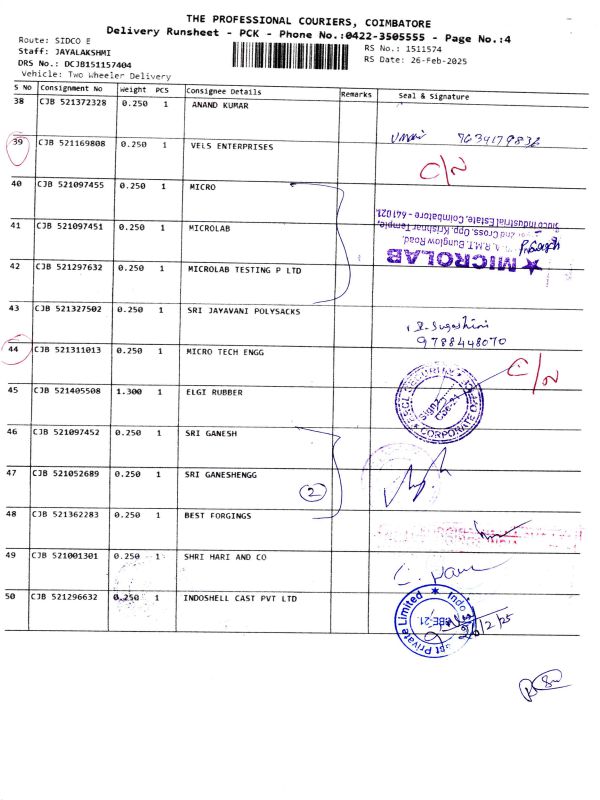 THE PROFESSIONAL COURIERS, COIMBATORE
Delivery Runsheet - PCK - Phone No.:0422-3505555 - Page No.:4
Route: SIDCO E
Staff: JAYALAKSHMI
DRS No.: DCJB151157404
Vehicle: Two Wheeler Delivery
RS No.: 1511574
RS Date: 26-Feb-2025
S No Consignment No Weight PCS Consignee Details Remarks Seal & Signature
38 CJB 521372328 0.250 1 ANAND KUMAR
39 CJB 521169808 0.250 1 VELS ENTERPRISES
C/N
40 CJB 521097455 0.250 1 MICRO
41 CJB 521097451 0.250 1 MICROLAB
42 CJB 521297632 0.250 1 MICROLAB TESTING P LTD
★ MICROLAB
A.R.M.T. Bunglow Road,
2nd Cross, Opp. Krishnar Temple,
Sidco Industrial Estate, Coimbatore - 641021.
43 CJB 521327502 0.250 1 SRI JAYAVANI POLYSACKS
9788448070
44 CJB 521311013 0.250 1 MICRO TECH ENGG
C/N
45 CJB 521405508 1.300 1 ELGI RUBBER
CORPORATE
46 CJB 521097452 0.250 1 SRI GANESH
47 CJB 521052689 0.250 1 SRI GANESHENGG
2
48 CJB 521362283 0.250 1 BEST FORGINGS
49 CJB 521001301 0.250 1 SHRI HARI AND CO
50 CJB 521296632 0.250 1 INDOSHELL CAST PVT LTD
Private Limited ★ Indo
26/2/25